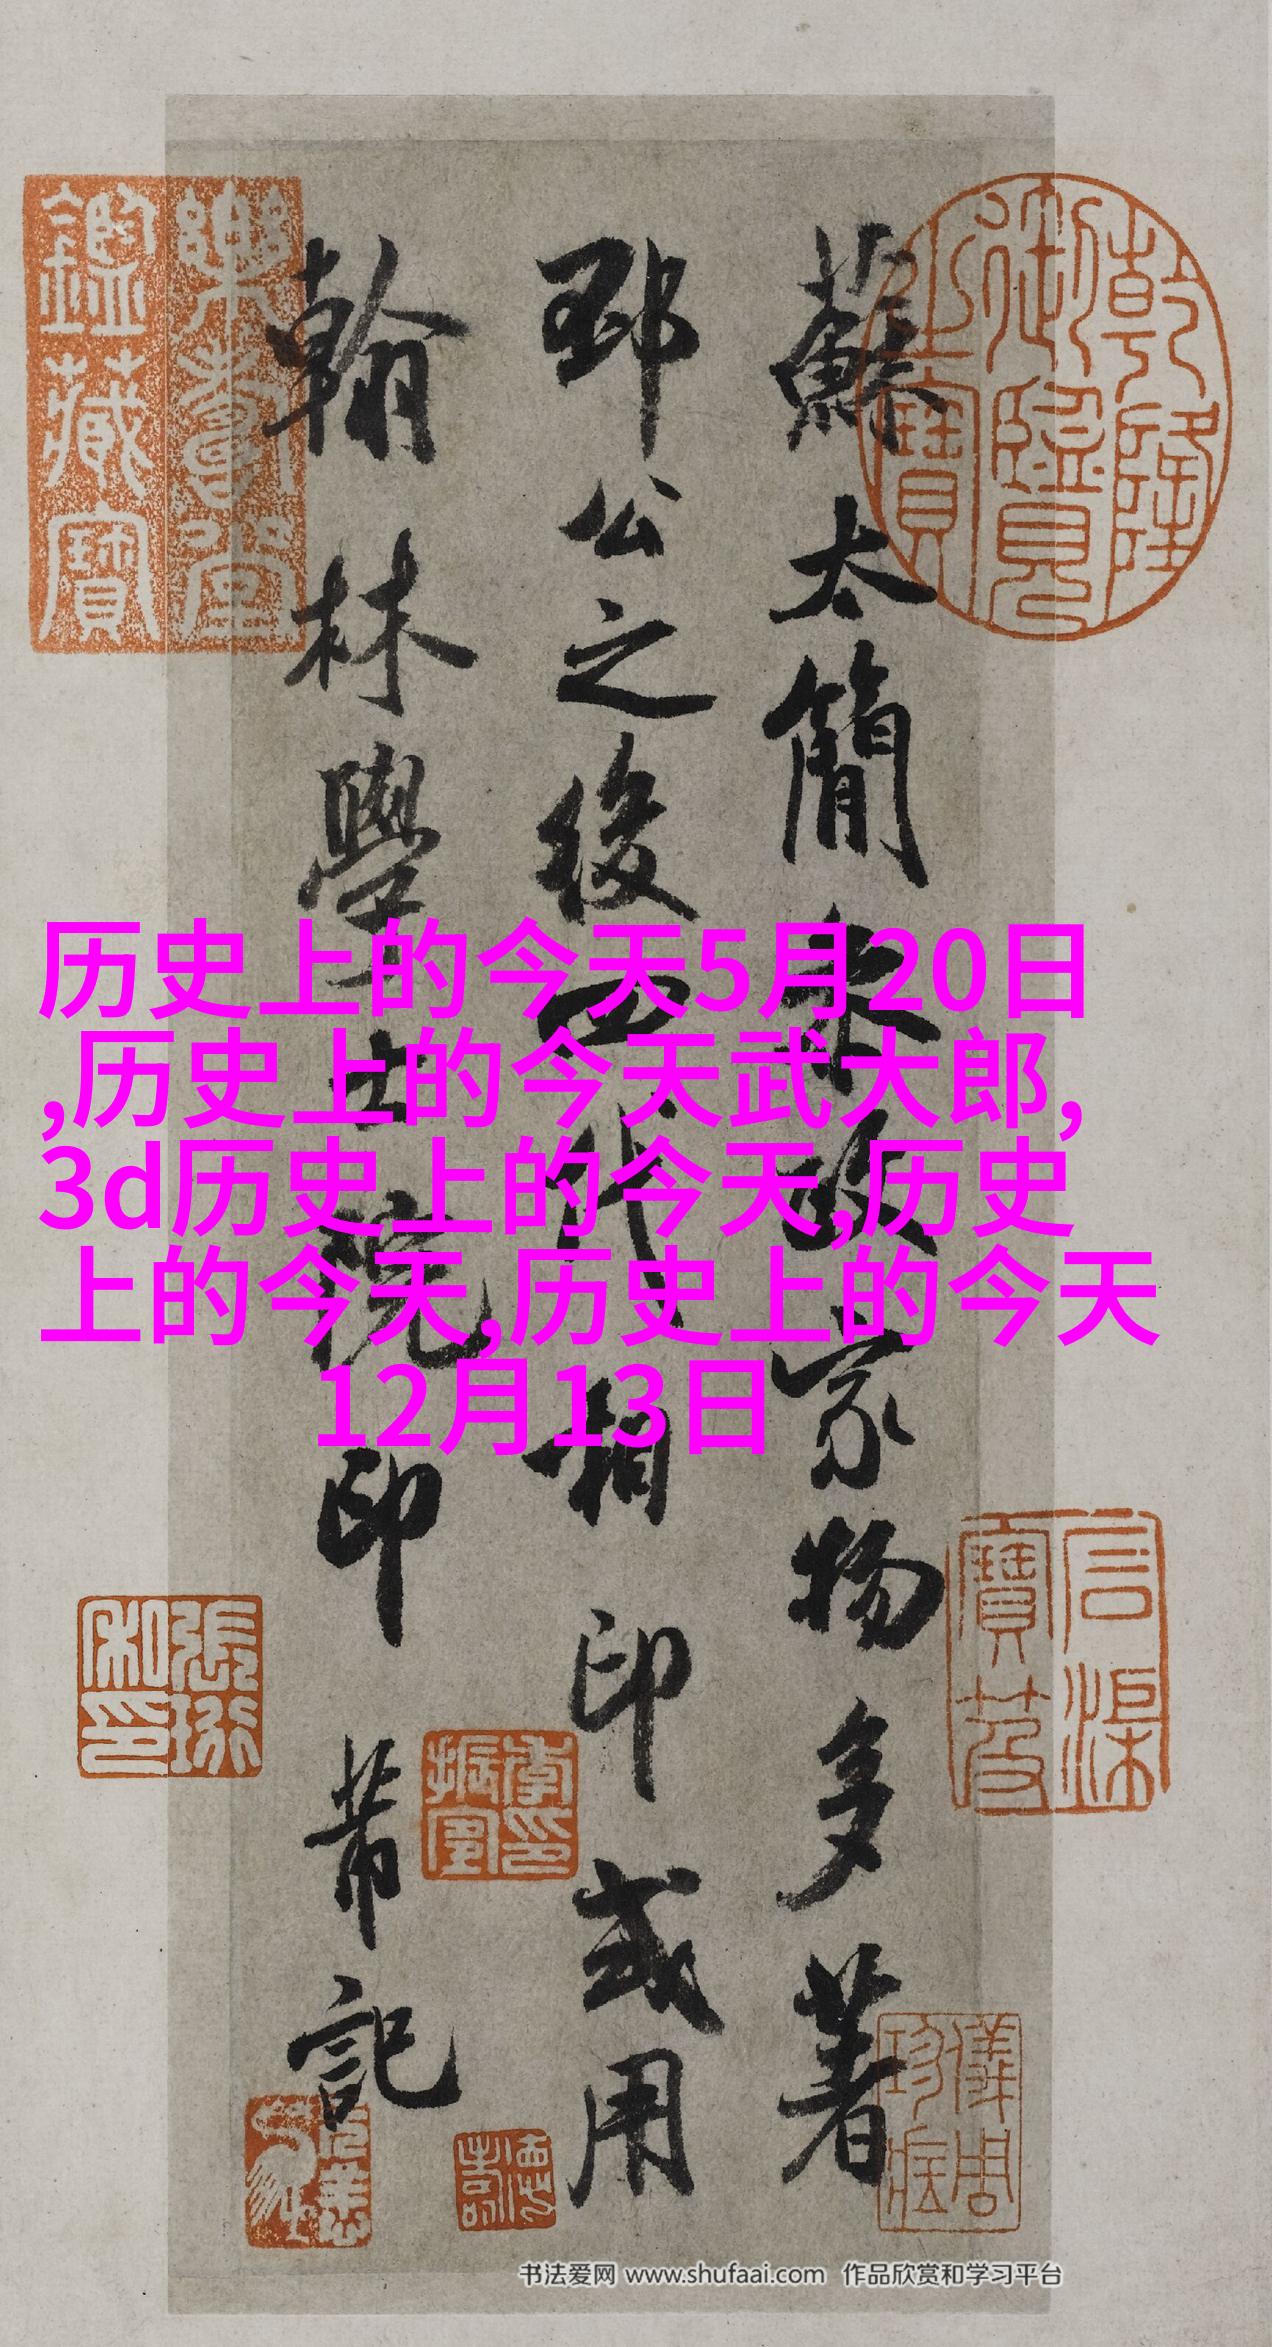 蘇太簡家物多著
邳公之後四代相印或用
翰林學士院印芾記
历史上的今天5月20日
,历史上的今天武大郎,
3d历史上的今天,历史
上的今天,历史上的今天
12月13日
乾隆御覽之寶
樂壽堂鑑藏寶
儀周珍藏
書法爱网 www.shufaai.com 作品欣赏和学习平台